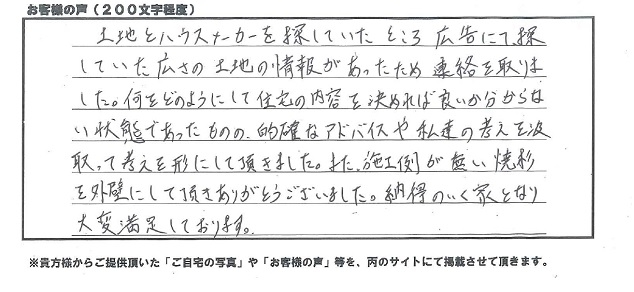 お客様の声（200文字程度）
土地とハウスメーカーを探していたところ広告にて、探
していた広さの土地の情報があったため連絡を取りま
した。何をどのようにして住宅の内容を決めれば良いか分からな
い状態であったものの、的確なアドバイスや私達の考えを汲
取って考えを形にして頂きました。また、施工例が無い焼杉
を外壁にして頂きありがとうございました。納得のいく家となり
大変満足しております。
※貴方様からご提供頂いた「ご自宅の写真」や「お客様の声」等を、丙のサイトにて掲載させて頂きます。